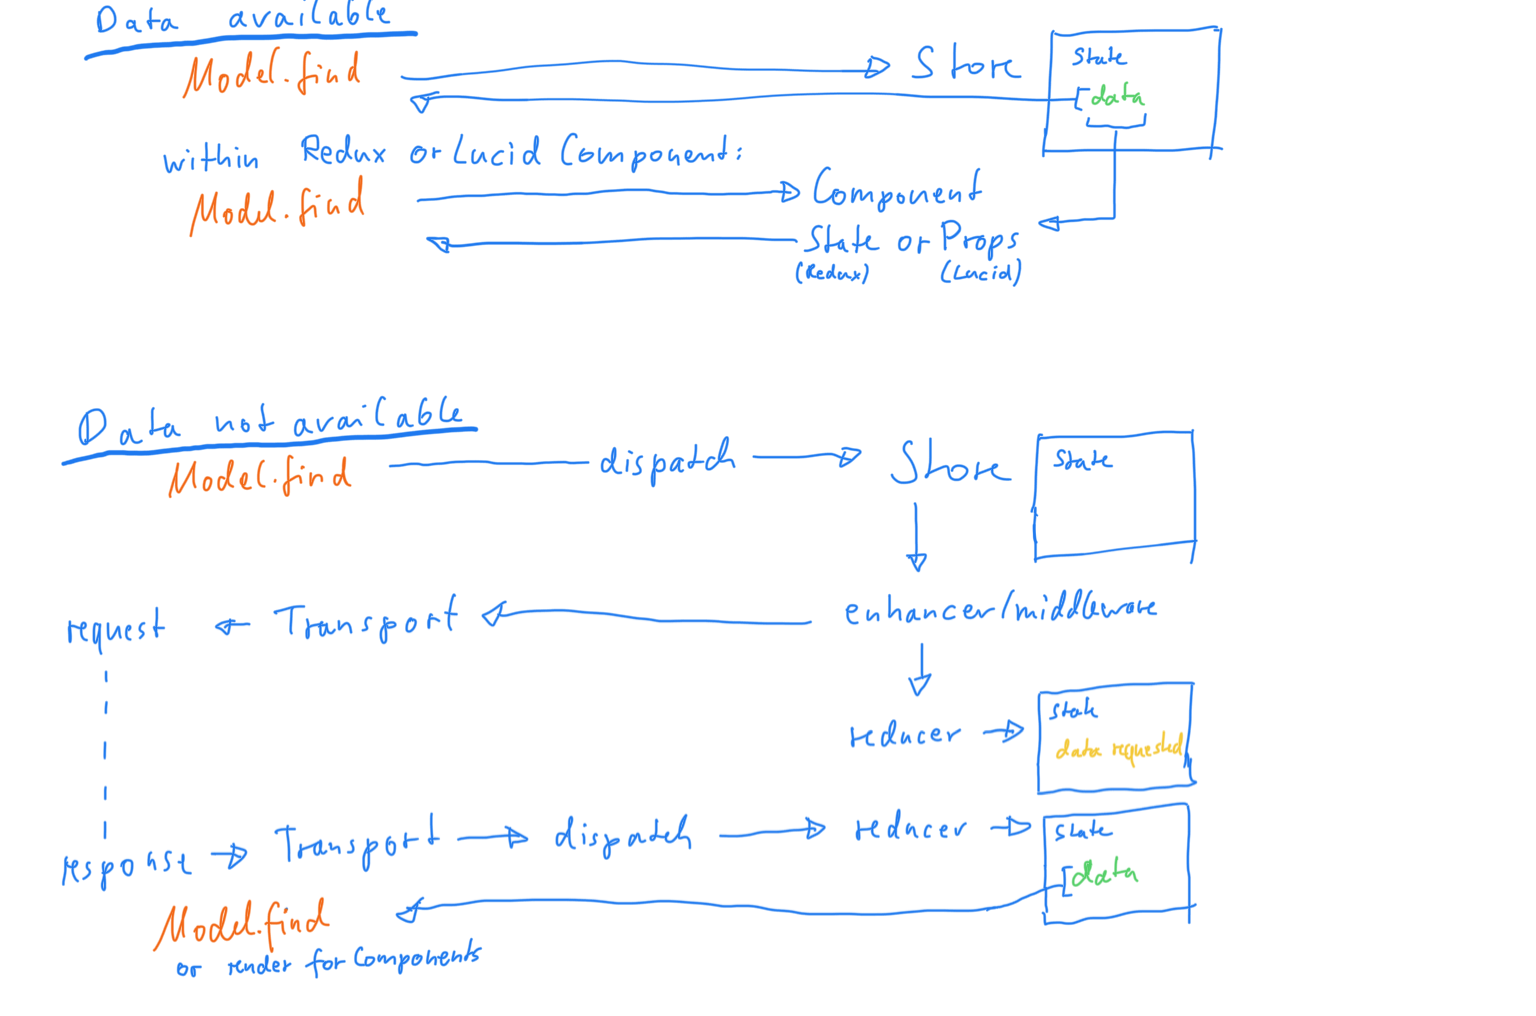 Data available
Model.find
Store
State
data
within Redux or Lucid Component:
Model.find
Component
State or Props
(Redux) (Lucid)
Data not available
Model.find
dispatch
Store
State
request
Transport
enhancer/middleware
reducer
State
data requested
response
Transport
dispatch
reducer
State
data
Model.find
or render for Components